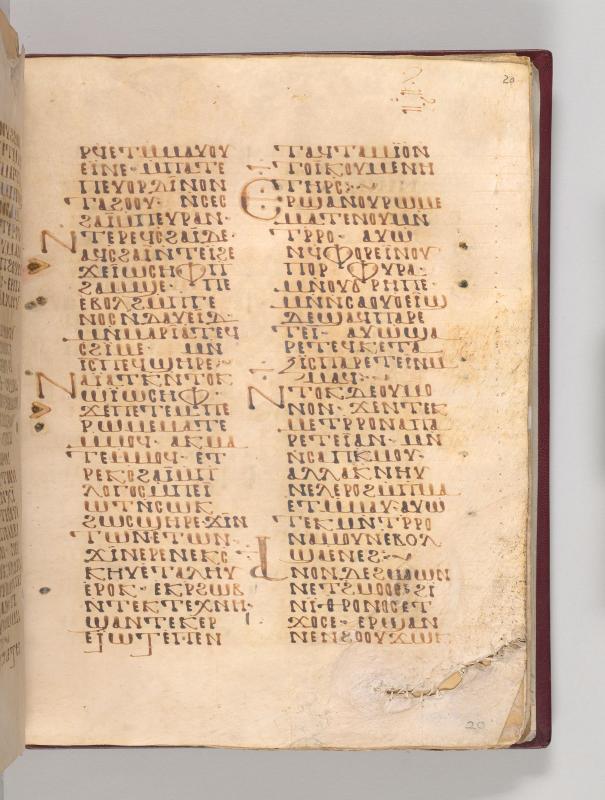 20
ⲣϥⲉⲧⲙⲙⲁⲩⲟⲩ
ⲉⲓⲛⲉ· ⲙⲡⲁⲧⲉ
ⲡⲉⲩⲟⲣⲇⲓⲛⲟⲛ
ⲧⲁϩⲟⲟⲩ· ⲛⲥⲉⲥ
ϩⲁⲓⲙⲡⲉⲩⲣⲁⲛ·
ⲛⲧⲉⲣⲉϥⲥϩⲁⲓⲇⲉ·
ⲁϥⲥϩⲁⲓⲛⲧⲉⲓϩⲉ
ϫⲉⲓⲱⲥⲏⲫⲡ
ϩⲁⲙϣⲉ· ⲡⲉ
ⲉⲃⲟⲗϩⲙⲡⲅⲉ
ⲛⲟⲥⲛⲇⲁⲩⲉⲓⲇ·
ⲙⲛⲙⲁⲣⲓⲁⲧⲉϥ
ⲥϩⲓⲙⲉ· ⲙⲛ
ⲓⲥⲡⲉϥϣⲏⲣⲉ·
ⲛⲁⲓⲁⲧⲕⲛⲧⲟⲕ
ⲱⲓⲱⲥⲏⲫ·
ϫⲉⲡⲉⲧⲉⲙⲡⲉ
ⲣⲱⲙⲉⲙⲁⲧⲉ
ⲙⲙⲟϥ· ⲁⲕⲙⲁ
ⲧⲉⲙⲙⲟϥ· ⲉⲧ
ⲣⲉⲕⲥϩⲁⲓⲙⲡ
ⲗⲟⲅⲟⲥⲙⲡⲉⲓ
ⲱⲧⲛⲥⲱⲕ
ϩⲱⲥϣⲏⲣⲉ·ϫⲓⲛ
ⲧⲱⲛⲉⲧⲱⲛ·
ϫⲓⲛⲉⲣⲉⲛⲉⲕϭ
ⲕⲏⲩⲉⲧⲁⲗⲏⲩ
ⲉⲣⲟⲕ· ⲉⲕⲣϩⲱⲃ
ⲛⲧⲉⲕⲧⲉⲭⲛⲏ·
ϣⲁⲛⲧⲉⲕⲉⲣ
ⲉⲓⲱⲧⲉⲓⲅⲉⲛ
ⲧⲁϥⲧⲁⲙⲓⲟⲛ
ⲧⲟⲓⲕⲟⲩⲙⲉⲛⲏ
ⲧⲏⲣⲥ·
ⲉⲣϣⲁⲛⲟⲩⲣⲱⲙⲉ
ⲙⲁⲧⲉⲛⲟⲩⲙⲛ
ⲧⲣⲣⲟ· ⲁⲩⲱ
ⲛϥⲫⲟⲣⲉⲓⲛⲟⲩ
ⲡⲟⲣⲫⲩⲣⲁ·
ⲙⲛⲟⲩϭⲣⲏⲡⲉ·
ⲙⲛⲛⲥⲁⲟⲩⲟⲉⲓϣ
ⲇⲉϣⲁϥⲡⲁⲣⲉ
ⲧⲉⲓ· ⲁⲩⲱϣⲁ
ⲣⲉⲧⲉϥⲕⲉⲧⲁ
ⲝⲓⲥⲡⲁⲣⲉⲧⲉⲓⲛⲙ
ⲙⲁϥ·
ⲛⲧⲟⲕⲇⲉⲟⲩⲙⲟ
ⲛⲟⲛ· ϫⲉⲛⲧⲉⲕ
ⲙⲉⲧⲣⲣⲟⲛⲁⲡⲁ
ⲣⲉⲧⲉⲓⲁⲛ· ⲙⲛ
ⲛⲥⲁⲡⲕⲙⲟⲩ·
ⲁⲗⲗⲁⲕⲛⲏⲩ
ⲛⲉⲗⲉⲣⲟϩⲙⲡⲙⲁ
ⲉⲧⲙⲙⲁⲩ·ⲁⲩⲱ
ⲧⲉⲕⲙⲛⲧⲣⲣⲟ
ⲛⲁⲙⲟⲩⲛⲉⲃⲟⲗ
ϣⲁⲉⲛⲉϩ·
ⲁⲛⲟⲛⲇⲉϩⲛⲁϣⲛ
ⲛⲉⲧϩⲙⲟⲟⲥϩⲓ
ⲛⲓⲑⲣⲟⲛⲟⲥⲉⲧ
ϫⲟⲥⲉ· ⲉⲣϣⲁⲛ
ⲛⲉⲛϩⲟⲟⲩϫⲱⲕ
20